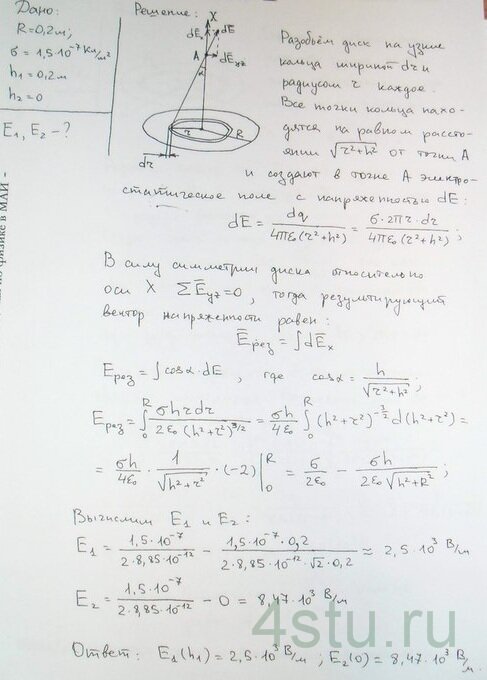 Дано:
R=0,2 м
σ = 1,5·10⁻⁷ Кл/м²
h₁ = 0,2 м
h₂ = 0
E₁, E₂ - ?
Решение:
X
dEₓ
dE
A
dE_yz
α
r
R
dr
Разобьём диск на узкие
кольца шириной dr и
радиусом r каждое.
Все точки кольца нахо-
дятся на равном рассто-
янии √(r²+h²) от точки А
и создают в точке А электро-
статическое поле с напряженностью dE:
dE = dq / (4πε₀(r²+h²)) = σ·2πr·dr / (4πε₀(r²+h²));
В силу симметрии диска относительно
оси X ΣĒ_yz=0, тогда результирующий
вектор напряженности равен:
Ē_рез = ∫dĒₓ
E_рез = ∫cosα·dE, где cosα = h / √(r²+h²);
E_рез = ∫₀ᴿ σhrdr / (2ε₀(h²+r²)^(3/2)) = σh/4ε₀ ∫₀ᴿ (h²+r²)^(-3/2) d(h²+r²) =
= σh/4ε₀ · 1/√(h²+r²) · (-2) |₀ᴿ = σ/2ε₀ - σh / (2ε₀√(h²+R²));
Вычислим E₁ и E₂:
E₁ = 1,5·10⁻⁷ / (2·8,85·10⁻¹²) - 1,5·10⁻⁷·0,2 / (2·8,85·10⁻¹²·√2·0,2) ≈ 2,5·10³ В/м
E₂ = 1,5·10⁻⁷ / (2·8,85·10⁻¹²) - 0 = 8,47·10³ В/м
Ответ: E₁(h₁) = 2,5·10³ В/м; E₂(0) = 8,47·10³ В/м.
4stu.ru
по физике в МАИ -